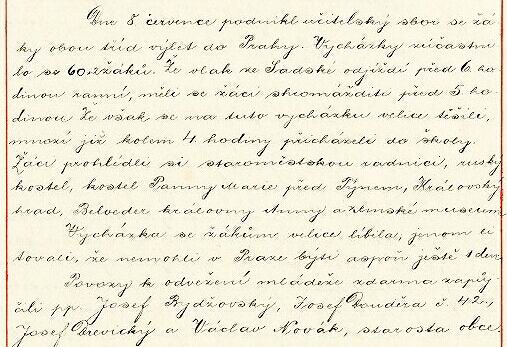 Dne 8 července podnikl učitelský sbor se žá
ky obou tříd výlet do Prahy. Vycházky zúčastni
lo se 60.2 žáků. Že vlak ze Sadské odjíždí před 6. ho
dinou ranní, měli se žáci shromážditi před 5 ho
dinou. Že však se na tuto vycházku velice těšili,
mnozí již kolem 4 hodiny přicházeli do školy.
Žáci prohlédli si staroměstskou radnici, ruský
kostel, kostel Panny Marie před Týnem, Královský
hrad, Belveder královny Anny a zemské museum.
Vycházka se žákům velice líbila, jenom li
tovali, že nemohli v Praze býti aspoň ještě 1 den.
Povozy k odvežení mládeže zdarma zapůj
čili pp. Josef Bydžovský, Josef Douděra č. 42.,
Josef Dřevický a Václav Novák, starosta obce.